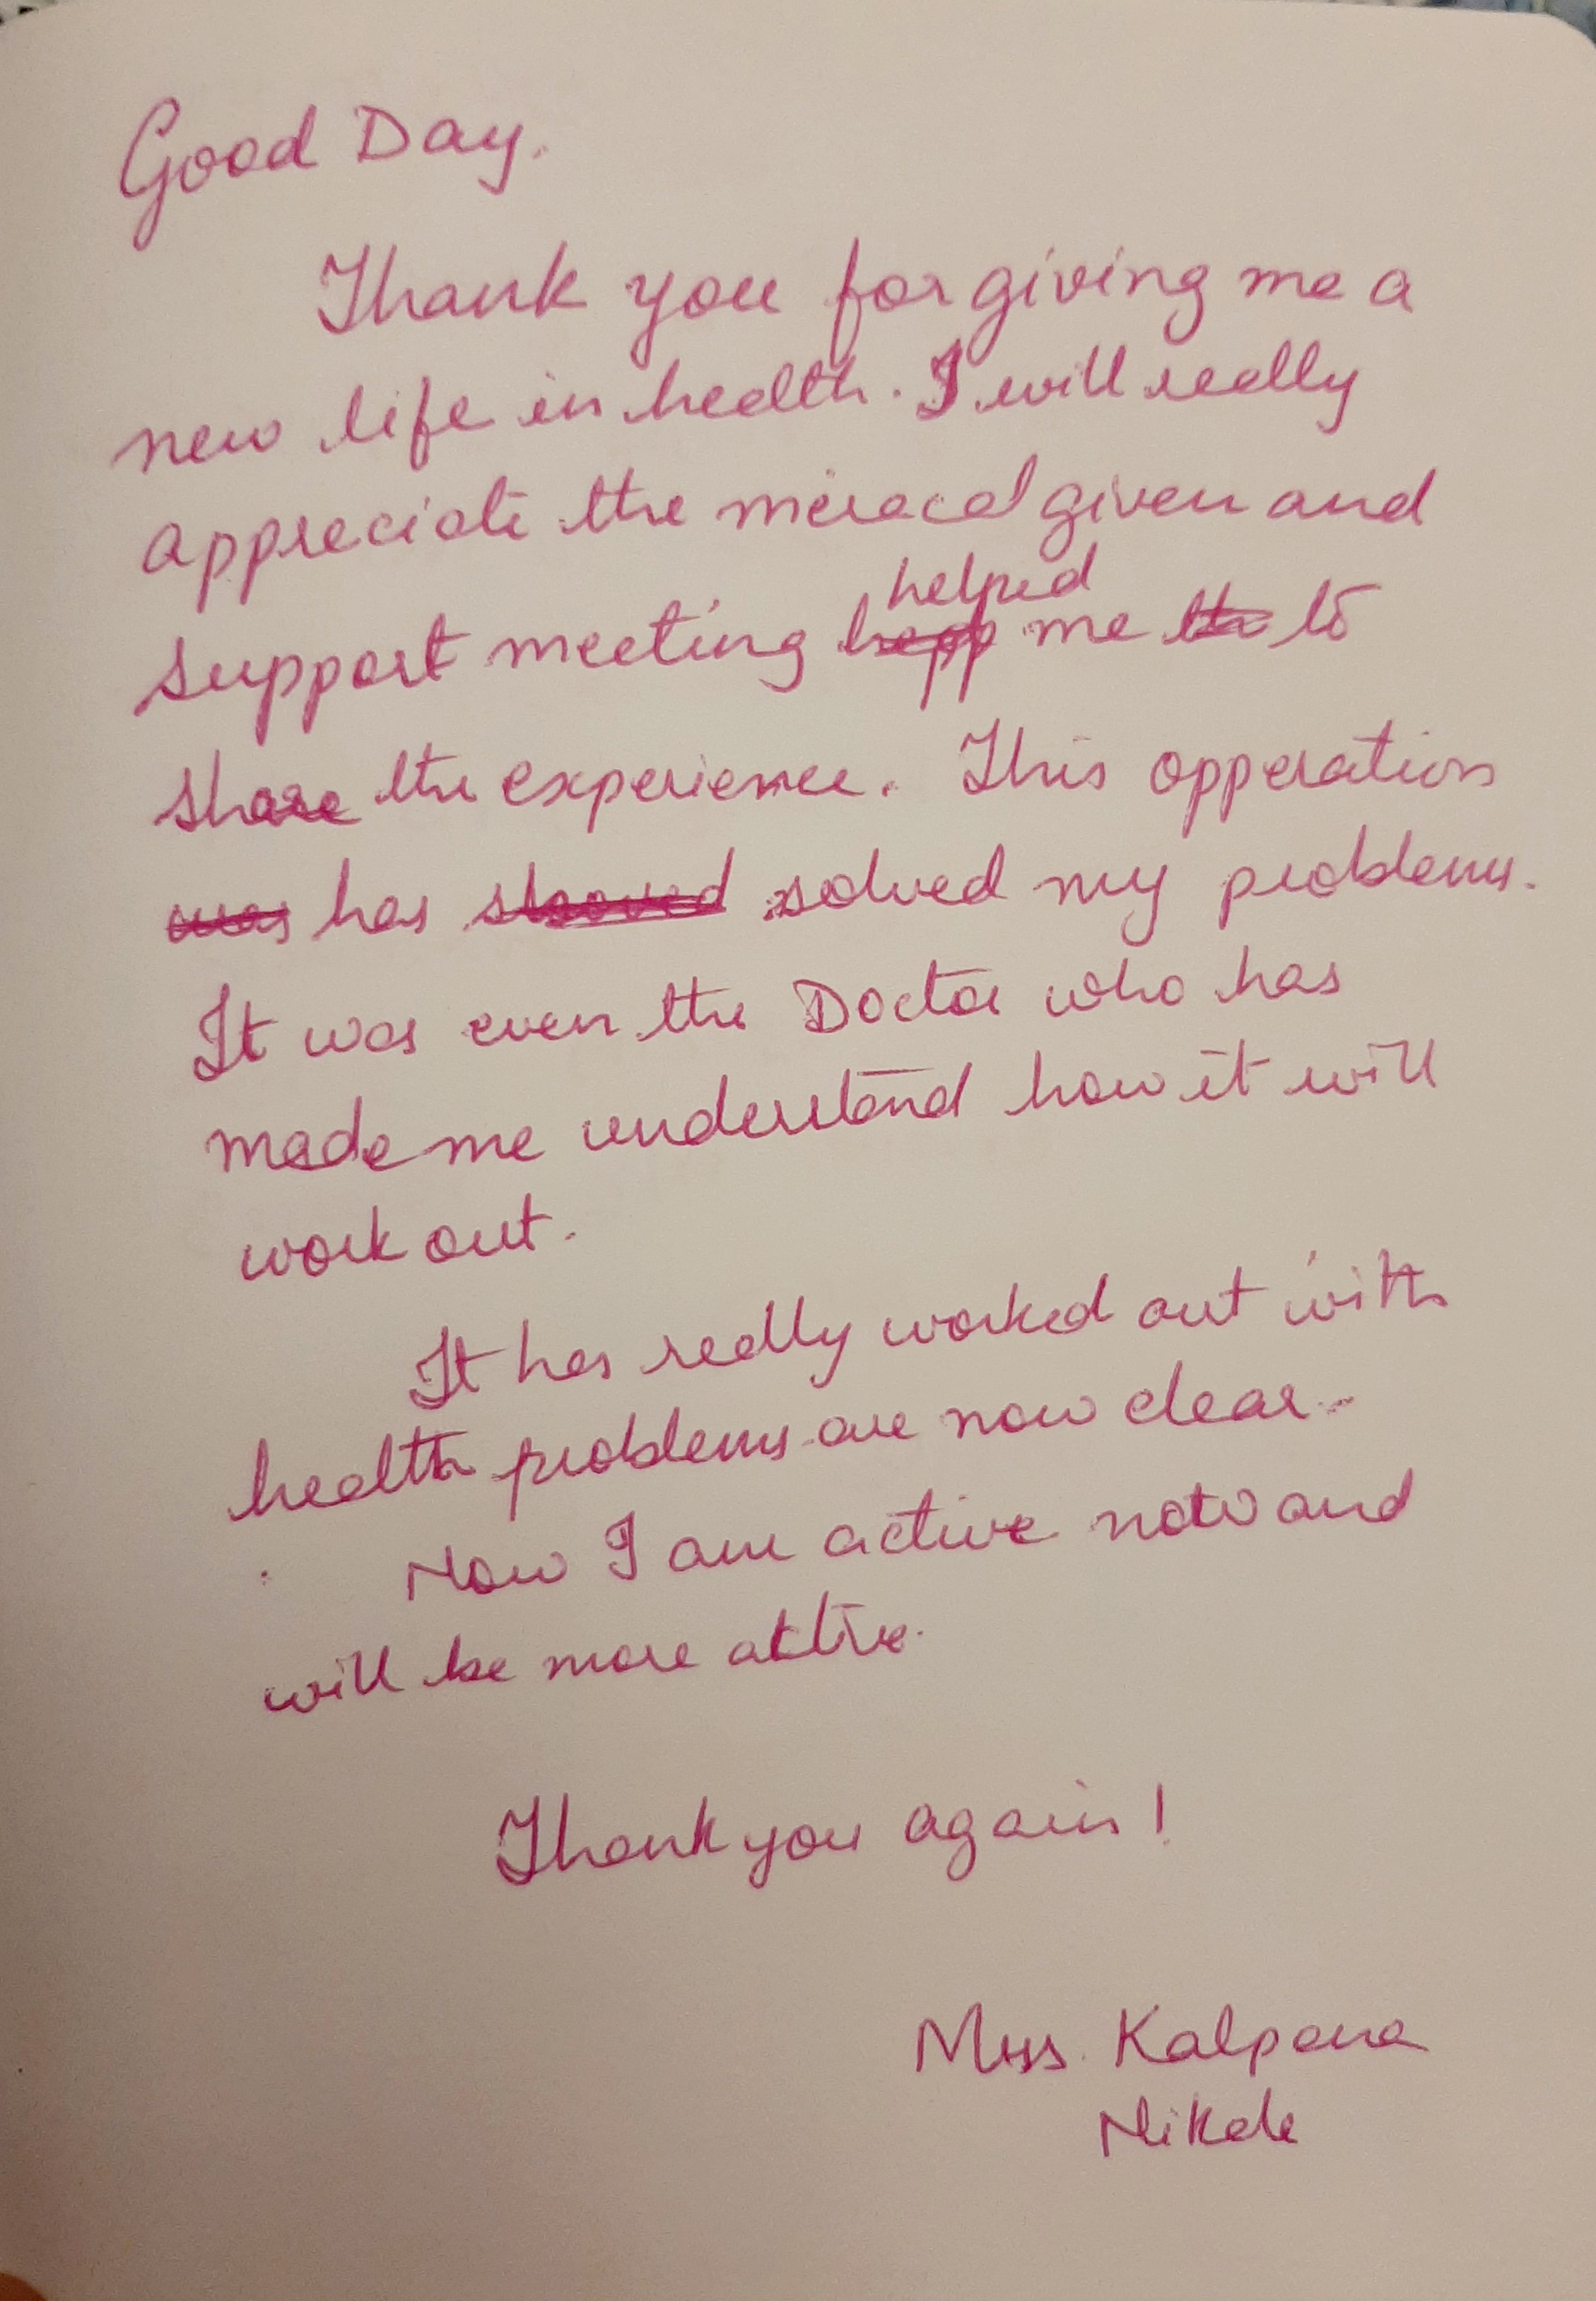 Good Day.
Thank you for giving me a
new life in health. I will really
appreciate the miracal given and
helped
support meeting me to
share the experience. This opperation
was has solved my problems.
It was even the Doctor who has
made me understand how it will
work out.
It has really worked out with
health problems are now clear.
Now I am active now and
will be more active.
Thank you again!
Kalpana